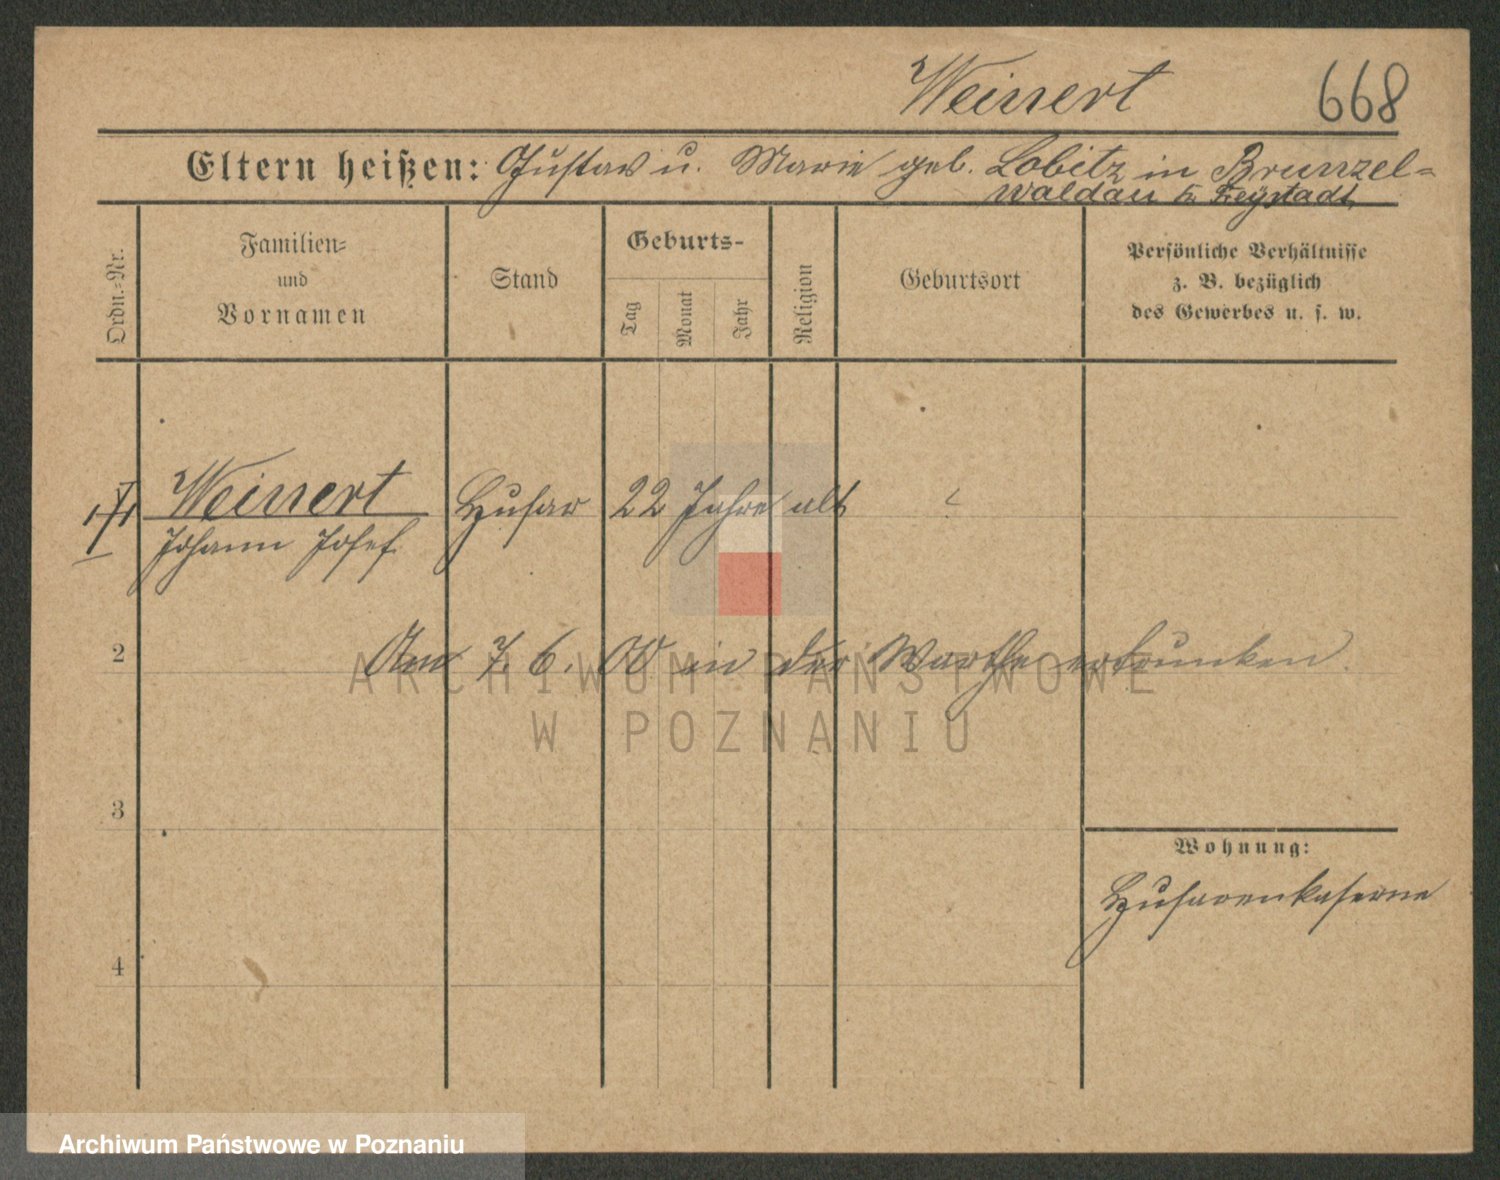 Weinert 668
Eltern heißen: Gustav u. Marie geb. Lobitz in Brunzel=
waldau Kr. Freystadt
Ordn.=Nr.
Familien=
und
Vornamen
Stand
Geburts=
Tag
Monat
Jahr
Religion
Geburtsort
Persönliche Verhältnisse
z. B. bezüglich
des Gewerbes u. s. w.
Weinert Husar 22 Jahre alt
Johann Josef
2
Am 7. 6. 00 in der Warthe ertrunken.
ARCHIWUM PAŃSTWOWE
W POZNANIU
3
Wohnung:
Husarenkaserne
4
Archiwum Państwowe w Poznaniu